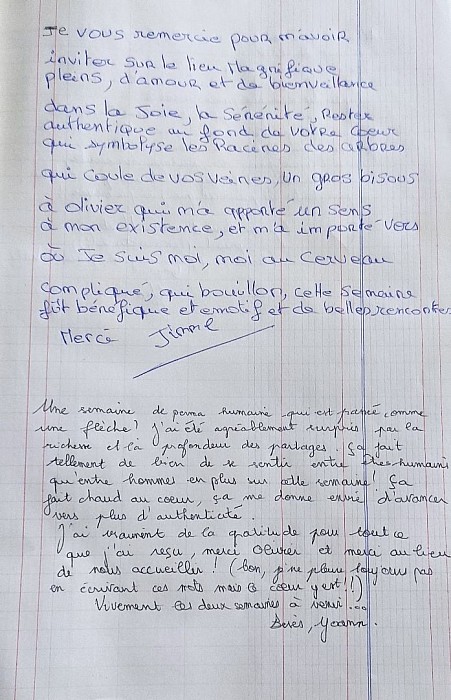 Je vous remercie pour m'avoir
inviter sur le lieu Magnifique
pleins, d'amour et de bienveillance
dans la Joie, la Sérénité, Rester
authentique au fond de votre coeur
qui symbolyse les Racines des arbres
qui coule de vos veines, Un gros bisous
à olivier qui m'a apporté un sens
à mon existence, et m'a importé vers
où Je suis moi, moi au Cerveau
compliqué, qui bouillon, cette semaine
fût bénéfique et emotif et de belles rencontres
Merci Jimmé
Une semaine de perma humaine qui est passé comme
une flèche! J'ai été agréablement surpris par la
richesse et la profondeur des partages. Ça fait
tellement de bien de se sentir entre êtres humains
qu'entre hommes en plus sur cette semaine! Ça
fait chaud au coeur, ça me donne envie d'avancer
vers plus d'authenticité.
J'ai vraiment de la gratitude pour tout ce
que j'ai reçu, merci Olivier et merci au lieu
de nous accueillir! (bon, je ne pleure toujours pas
en écrivant ces mots mais le coeur y est!!)
Vivement les deux semaines à venir...
Yoann.